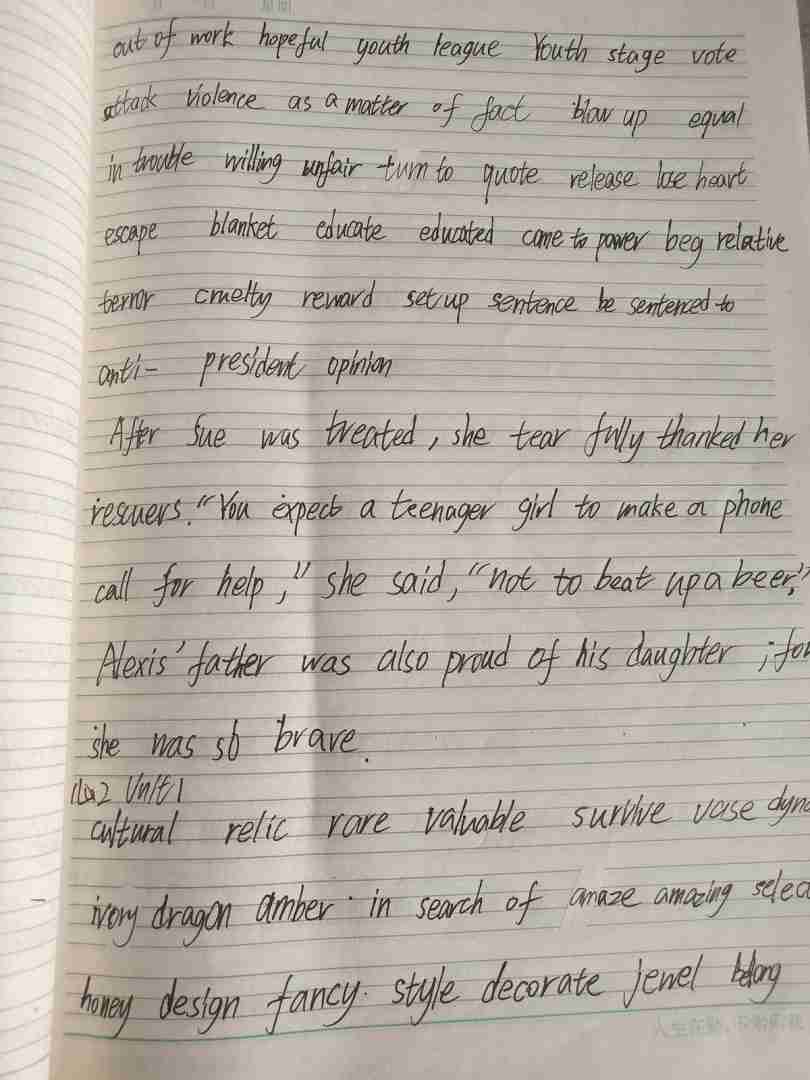 out of work hopeful youth league Youth stage vote
attack violence as a matter of fact blow up equal
in trouble willing unfair turn to quote release lose heart
escape blanket educate educated come to power beg relative
terror cruelty reward set up sentence be sentenced to
anti- president opinion
After Sue was treated, she tear fully thanked her
rescuers. "You expect a teenager girl to make a phone
call for help," she said, "not to beat up a beer,"
Alexis' father was also proud of his daughter ; for
she was so brave.
Unit 1
cultural relic rare valuable survive vase dyna
ivory dragon amber in search of amaze amazing selec
honey design fancy style decorate jewel belong